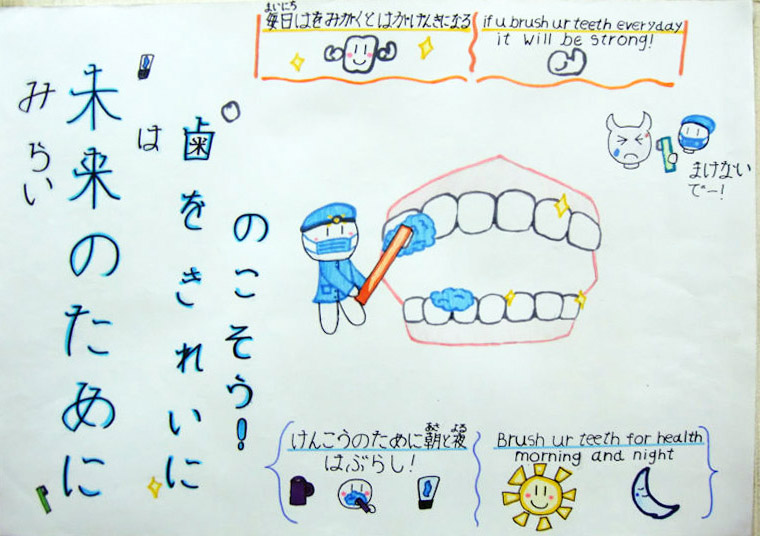 まいにち
毎日はをみがくとはがげんきになる
if u brush ur teeth everyday
it will be strong!
未来のために
みらい
歯をきれいに
は
のこそう!
まけない
でー!
あさ よる
けんこうのために朝と夜
はぶらし!
Brush ur teeth for health
morning and night